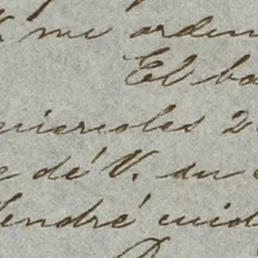 me orden
El ba
miercoles 2
e dé V. su
tendré cuid